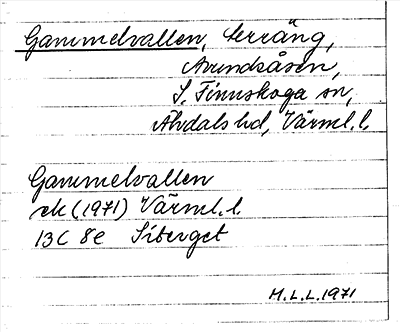 Gammelvallen, terräng,
Avundsåsen,
S. Finnskoga sn,
Älvdals hd, Värml. l.
Gammelvallen
ek (1971) Värml. l.
13C 8e Siberget
M.L.L. 1971